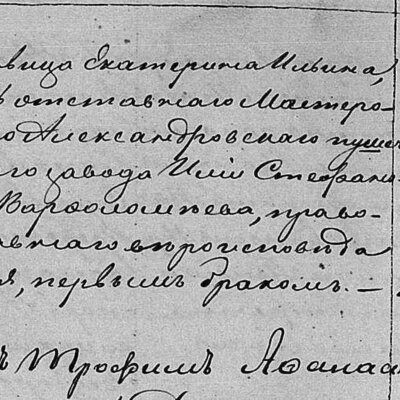 вица Екатерина Ильина,
отставнаго Мастеро-
о Александровскаго пушеч
го завода Ильи Стефани
Варфоломѣева, право-
авнаго вѣроисповѣда
я, первымъ бракомъ. —
ъ Трофимъ Афанас